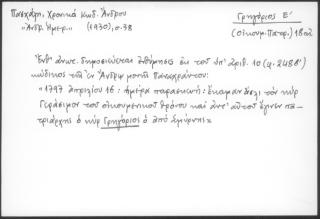 Πασχάλη, Χρονικά Κωδ. Άνδρου
"Άνδρ. Ημερ." (1930), σ. 38
Γρηγόριος Ε'
(Οικουμ. Πατρ.)
Ένθ' ανωτ. δημοσιεύεται ενθύμησις εκ του υπ' αριθ. 10
κώδικος της εν Άνδρω μονής Παναχράντου:
"1797 απριλίου 16: ημέρα παρασκευή: έκαμαν δέσι τον κυρ
Γεράσιμον του οικουμενικού θρόνου και αντ' αυτού έγινεν πα-
τριάρχης ο κυρ Γρηγόριος ο από Σμύρνης»